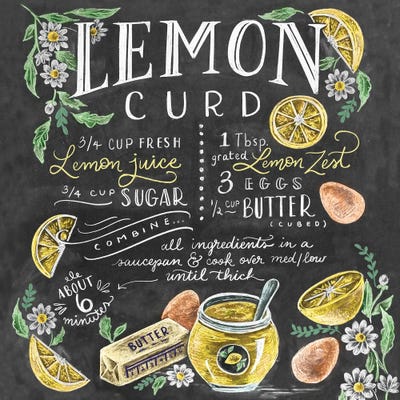 LEMON
CURD
3/4 CUP FRESH
Lemon juice
3/4 CUP SUGAR
1 Tbsp.
grated Lemon Zest
3 EGGS
1/2 CUP BUTTER
(CUBED)
COMBINE...
all ingredients in a
saucepan & cook over med/low
until thick
ABOUT
6
minutes
BUTTER